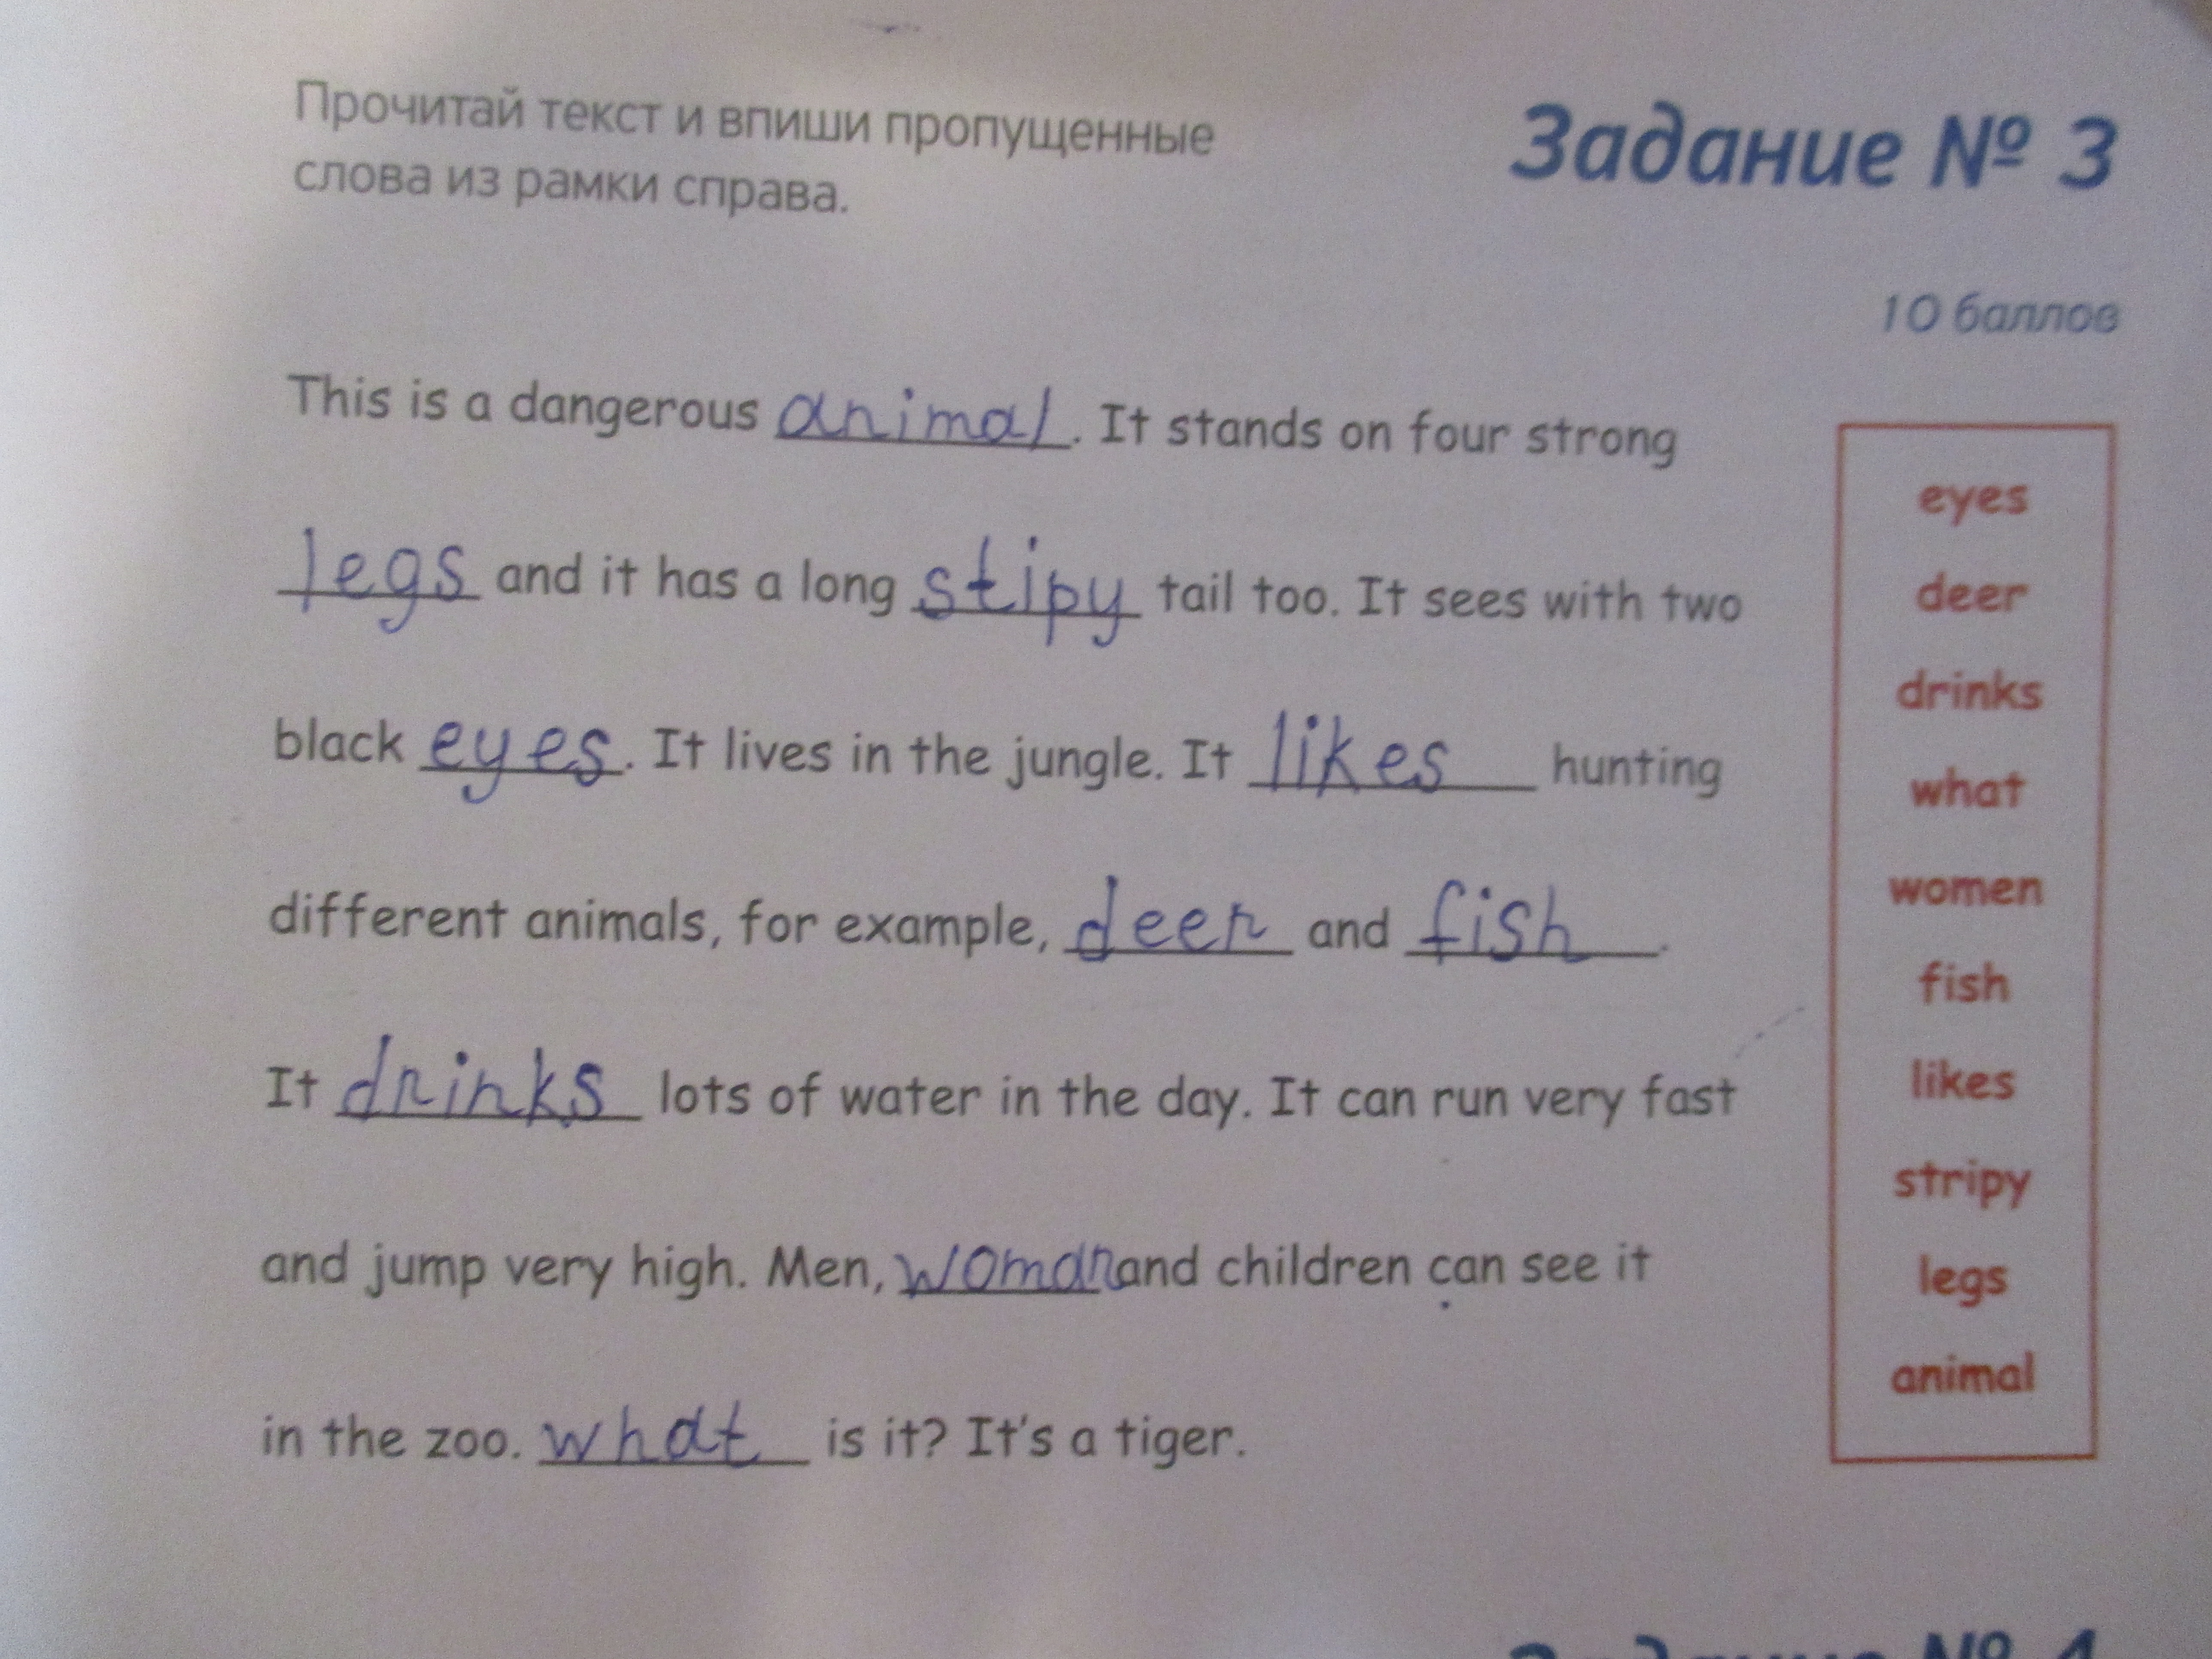 Прочитай текст и впиши пропущенные
слова из рамки справа.
Задание № 3
10 баллов
This is a dangerous animal. It stands on four strong
legs and it has a long stipy tail too. It sees with two
black eyes. It lives in the jungle. It likes hunting
different animals, for example, deer and fish.
It drinks lots of water in the day. It can run very fast
and jump very high. Men, woman and children can see it
in the zoo. what is it? It's a tiger.
eyes
deer
drinks
what
women
fish
likes
stripy
legs
animal
Задание № 4